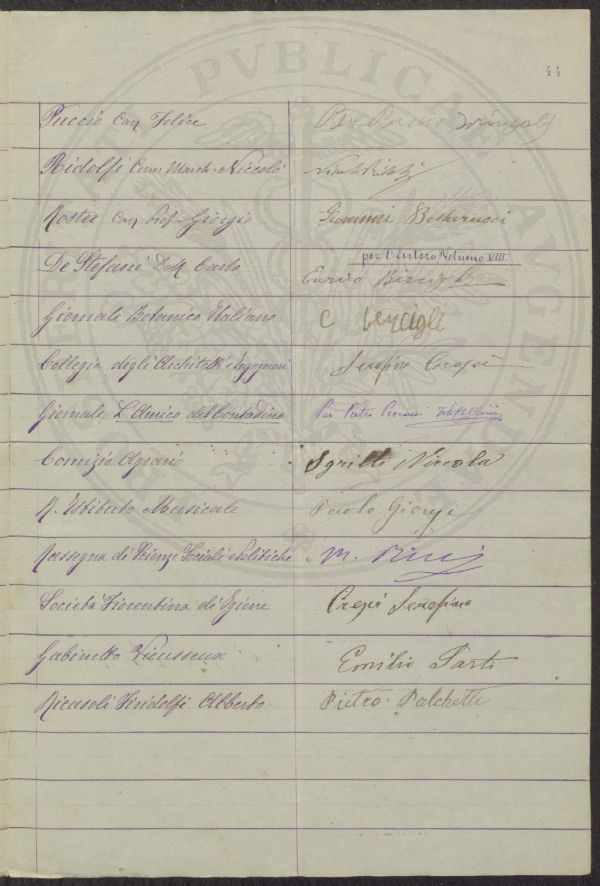 44
Puccio Cav Felice
Ridolfi Com: March: Niccolò
Roster Cav Prof Giorgio Giovanni
De Stefani Dott. Carlo per l'intero Volume VIII
Enrico
Giornale Botanico Italiano C
Collegio degli Architetti e Ingegneri Serafino Crepi
Giornale L'Amico del Contadino Per Pietro
Comizio Agrario Sgrilli Niccola
R. Istituto Musicale Paolo Giorgi
Rassegna di Scienze Sociali e Politiche M. Ricci
Società Fiorentina di Igiene Crepi Serafino
Gabinetto Vieusseux Emilio Sarti
Ricasoli Firidolfi Alberto Pietro Palchetti